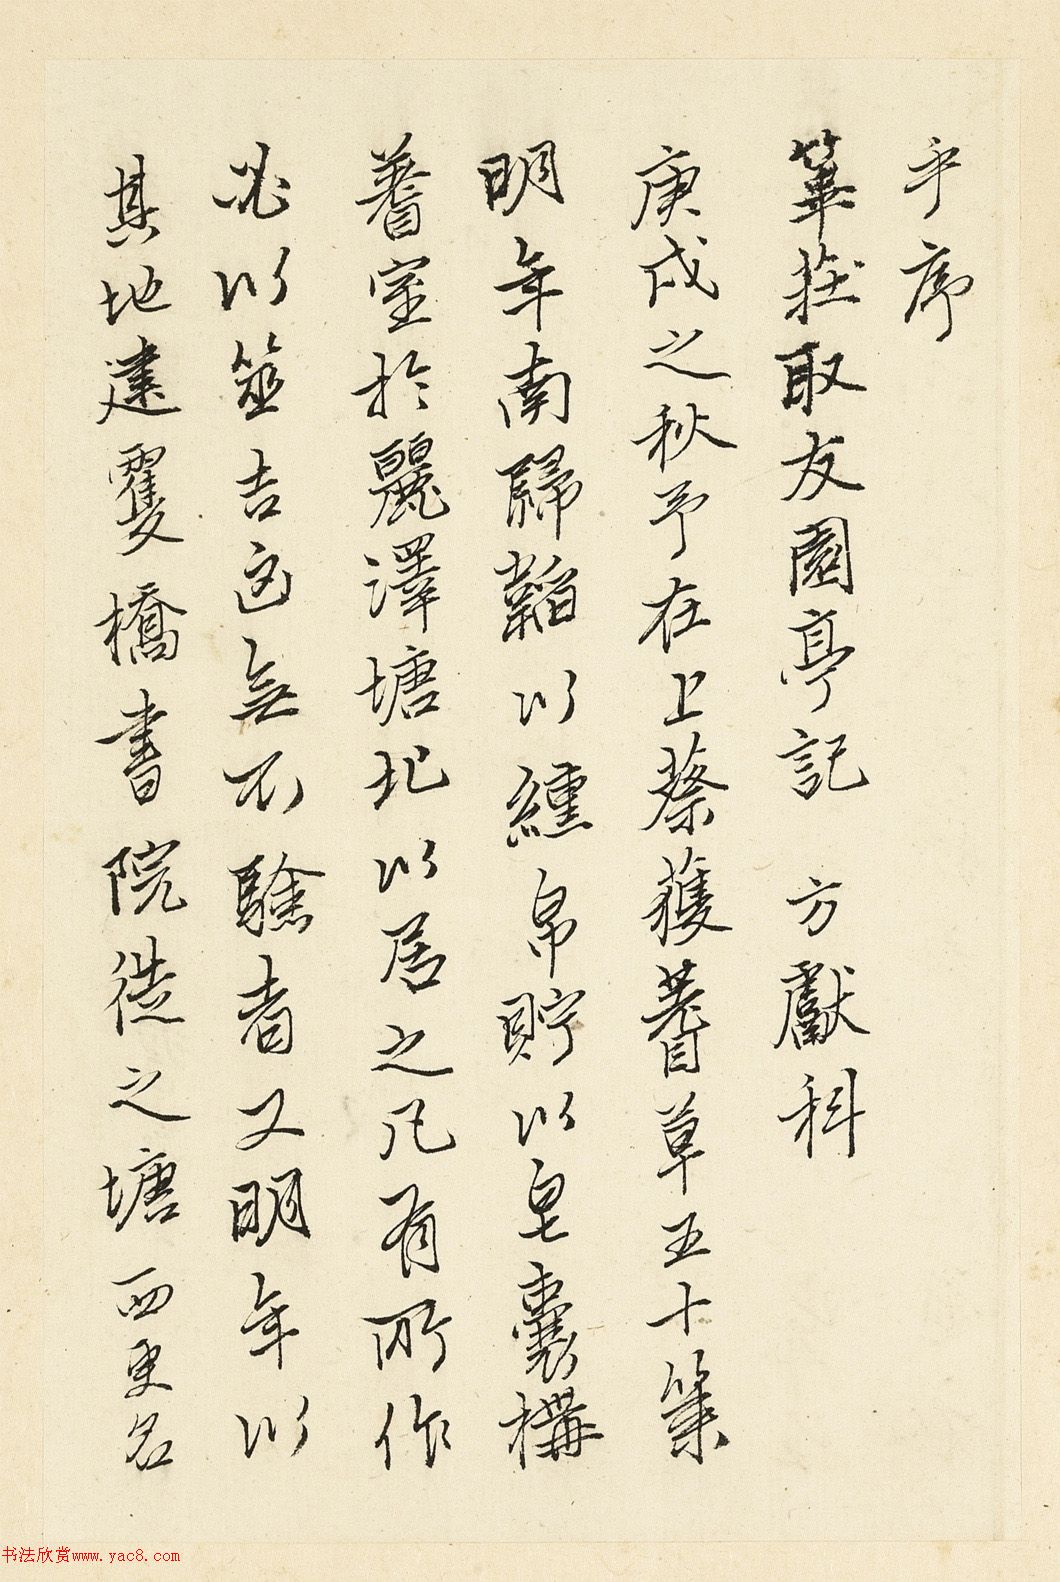 乎序
篳莊取友園亭記 方獻科
庚戌之秋予在上蔡獲蓍草五十策
明年南歸韜以纁帛貯以皂囊構
蓍室於麗澤塘北以居之凡有所作
必以筮吉凶無不驗者又明年以
其地建雙橋書院徙之塘西更名
书法欣赏www.yac8.com